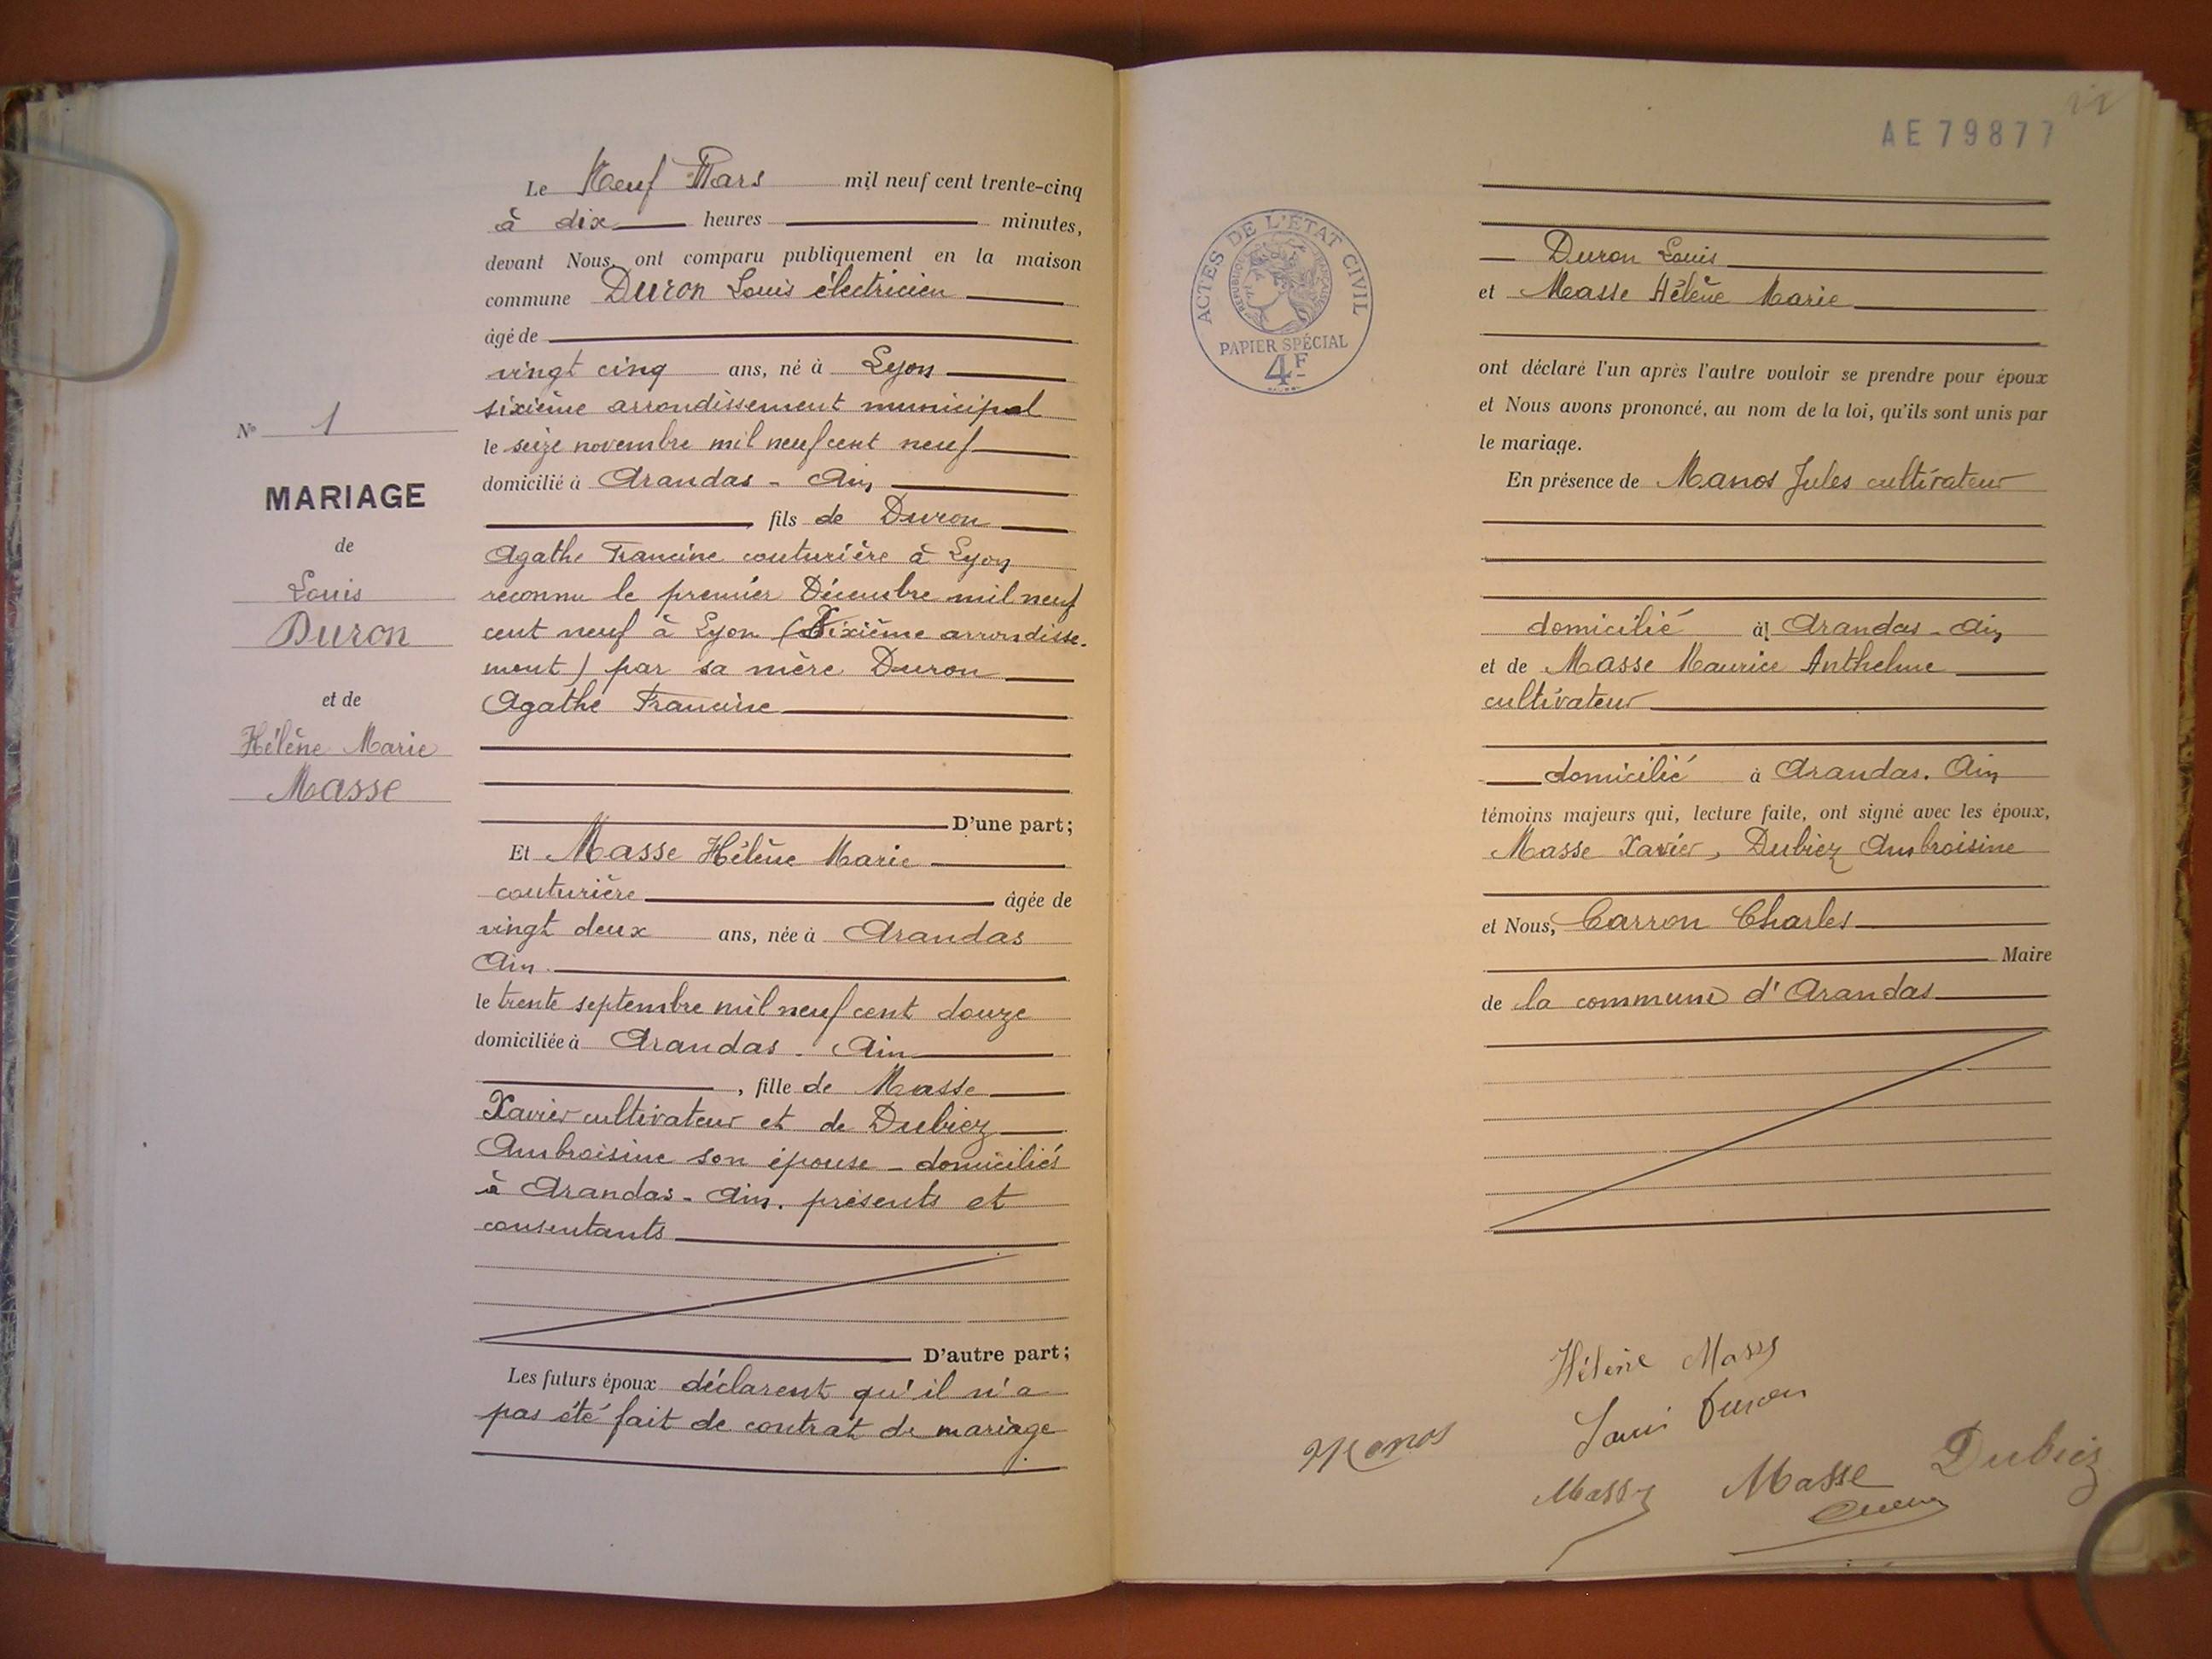 Le Neuf Mars mil neuf cent trente-cinq
à dix heures minutes,
devant Nous ont comparu publiquement en la maison
commune Duron Louis électricien
âgé de
vingt cinq ans, né à Lyon
sixième arrondissement municipal
le seize novembre mil neuf cent neuf
domicilié à Arandas - Ain
fils de Duron
Agathe Francine couturière à Lyon
reconnu le premier Décembre mil neuf
cent neuf à Lyon (Sixième arrondisse-
ment) par sa mère Duron
Agathe Francine
D'une part;
Et Masse Hélène Marie
couturière âgée de
vingt deux ans, née à Arandas
Ain.
le trente septembre mil neuf cent douze
domiciliée à Arandas. Ain
, fille de Masse
Xavier cultivateur et de Dubiez
Ambroisine son épouse - domiciliés
à Arandas - Ain. présents et
consentants
D'autre part;
Les futurs époux déclarent qu'il n'a
pas été fait de contrat de mariage
N° 1
MARIAGE
de
Louis
Duron
et de
Hélène Marie
Masse
AE 79877
ACTES DE L'ÉTAT CIVIL
RÉPUBLIQUE FRANÇAISE
PAPIER SPÉCIAL
4F
Duron Louis
et Masse Hélène Marie
ont déclaré l'un après l'autre vouloir se prendre pour époux
et Nous avons prononcé, au nom de la loi, qu'ils sont unis par
le mariage.
En présence de Manos Jules cultivateur
domicilié à Arandas - Ain
et de Masse Maurice Anthelme
cultivateur
domicilié à Arandas. Ain
témoins majeurs qui, lecture faite, ont signé avec les époux,
Masse Xavier, Dubiez Ambroisine
et Nous, Carron Charles
Maire
de la commune d'Arandas
Hélène Masse
Louis Duron
Manos
Masse Masse Dubiez